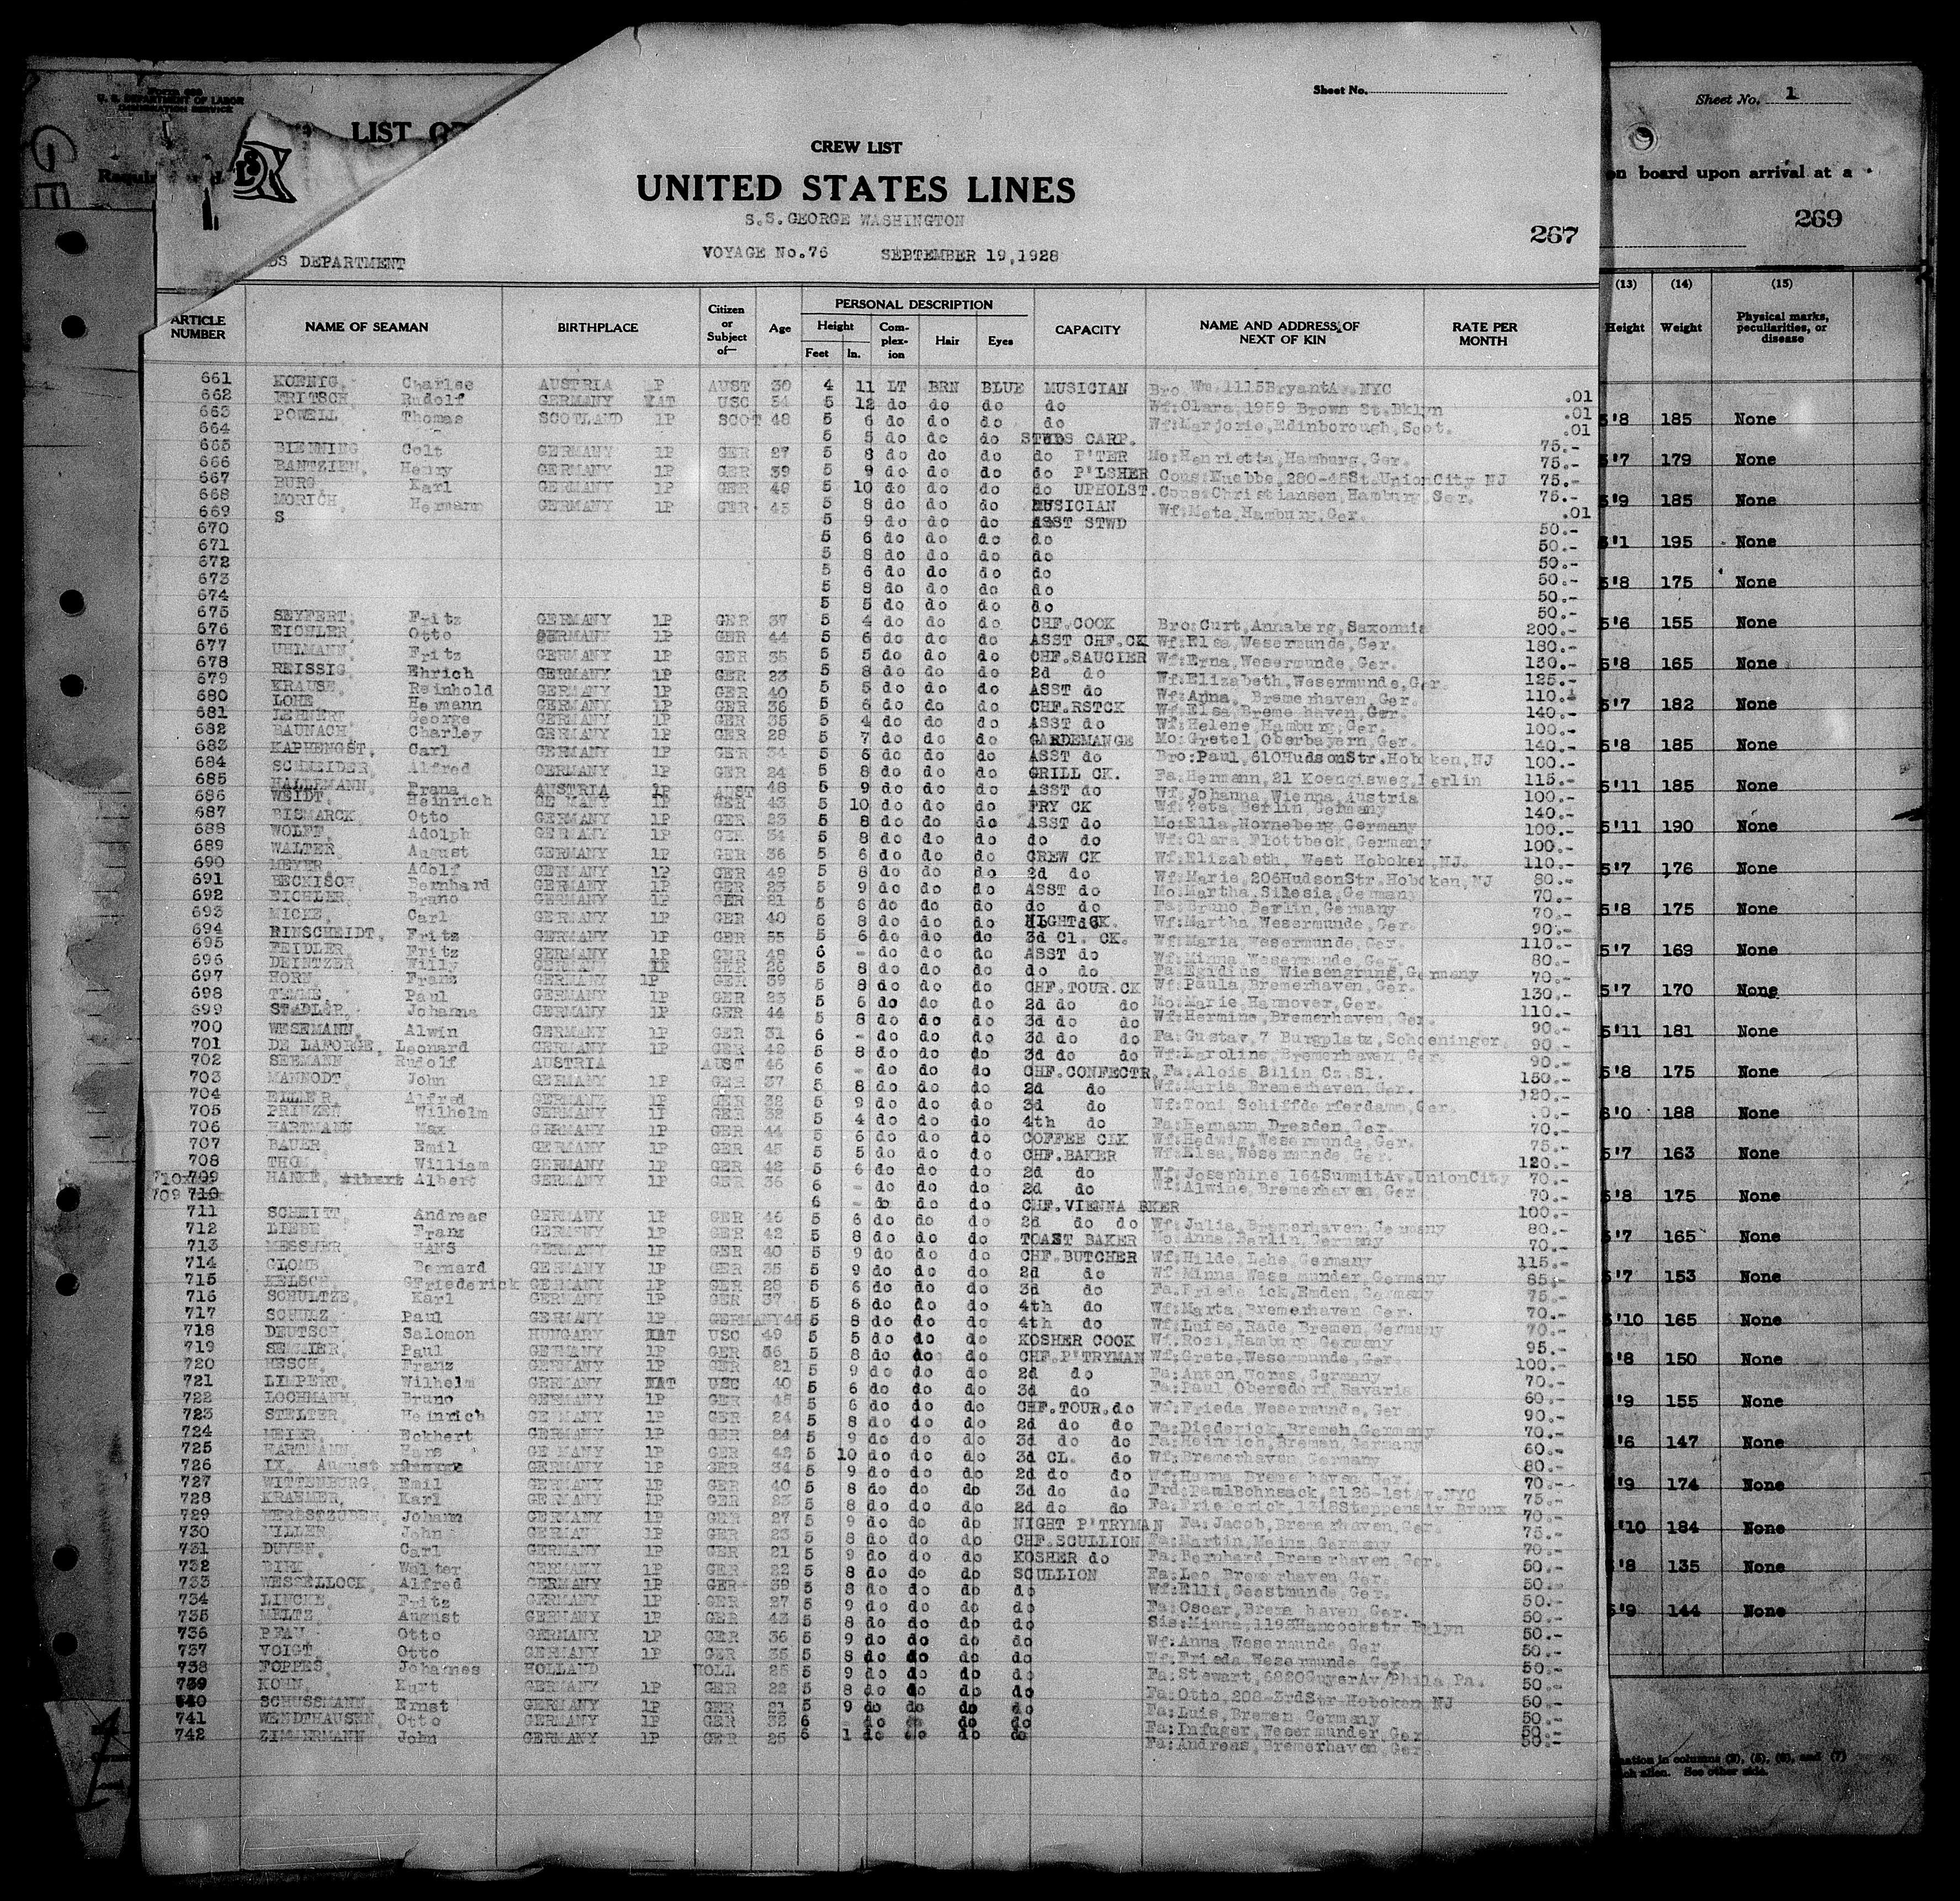 Form 689
U. S. DEPARTMENT OF LABOR
IMMIGRATION SERVICE
GE
LIST OF
Sheet No.
Sheet No. 1
CREW LIST
UNITED STATES LINES
S.S.GEORGE WASHINGTON
VOYAGE No.76 SEPTEMBER 19,1928
on board upon arrival at a
267
269
DS DEPARTMENT
ARTICLE NUMBER NAME OF SEAMAN BIRTHPLACE Citizen or Subject of— Age PERSONAL DESCRIPTION Height Feet In. Complexion Hair Eyes CAPACITY NAME AND ADDRESS OF NEXT OF KIN RATE PER MONTH
(13) Height (14) Weight (15) Physical marks, peculiarities, or disease
661 KOENIG, Charlse AUSTRIA 1P AUST 30 4 11 LT BRN BLUE MUSICIAN Bro Wm.1115BryantAv.NYC .01
662 FRITSCH, Rudolf GERMANY NAT USC 54 5 12 do do do do Wf:Clara,1959 Brown St.Bklyn .01
663 POWELL Thomas SCOTLAND 1P SCOT 48 5 6 do do do do Wf:Marjorie,Edinborough,Scot. .01
664 5 5 do do do STWDS CARP. 75.-
665 BIENNING Colt GERMANY 1P GER 27 5 8 do do do do P'TER Mo:Henrietta,Hamburg,Ger. 75.-
666 BANTZIEN, Henry GERMANY 1P GER 39 5 9 do do do do P'LSHER Cous:Knebbe,280-45St.UnionCity NJ 75.-
667 BURG Karl GERMANY 1P GER 49 5 10 do do do do UPHOLST. Cous:Christiansen,Hamburg,Ger. 75.-
668 MORICH, Hermann GERMANY 1P GER 45 5 8 do do do MUSICIAN Wf:Meta,Hamburg,Ger. .01
669 S 5 9 do do do ASST STWD 50.-
670 5 6 do do do do 50.-
671 5 8 do do do do 50.-
672 5 6 do do do do 50.-
673 5 8 do do do do 50.-
674 5 5 do do do do 50.-
675 SEYFERT, Fritz GERMANY 1P GER 37 5 4 do do do CHF.COOK Bro:Curt,Annaberg,Saxonnia 200.-
676 EICHLER, Otto GERMANY 1P GER 44 5 6 do do do ASST CHF.CK Wf:Elsa,Wesermunde,Ger. 180.-
677 UHLMANN, Fritz GERMANY 1P GER 35 5 5 do do do CHF.SAUCIER Wf:Erna,Wesermunde,Ger. 150.-
678 REISSIG, Ehrich GERMANY 1P GER 23 5 8 do do do 2d do Wf:Elizabeth,Wesermunde,Ger. 125.-
679 KRAUSE, Reinhold GERMANY 1P GER 40 5 5 do do do ASST do Wf:Anna, Bremerhaven,Ger. 110.-
680 LOHE Hermann GERMANY 1P GER 36 5 6 do do do CHF.RSTCK Wf:Elsa,Breme haven,Ger. 140.-
681 LEHNERT, George GERMANY 1P GER 35 5 4 do do do ASST do Wf:Helene,Hamburg,Ger. 100.-
682 BAUNACH, Charley GERMANY 1P GER 28 5 7 do do do GARDEMANGE Mo:Gretel,Oberbayern,Ger. 140.-
683 KAPHENGST, Carl GERMANY 1P GER 34 5 6 do do do ASST do Bro:Paul,610HudsonStr.Hoboken,NJ 100.-
684 SCHNEIDER, Alfred GERMANY 1P GER 24 5 8 do do do GRILL CK. Fa:Hermann,21 Koengisweg,Berlin 115.-
685 Franz AUSTRIA 1P AUST 48 5 9 do do do ASST do Wf:Johanna,Wienna,Austria 100.-
686 WEIDT, Heinrich GE MANY 1P GER 43 5 10 do do do FRY CK Wf:Meta,Berlin,Germany 140.-
687 BISMARCK, Otto GERMANY 1P GER 23 5 8 do do do ASST do Mo:Ella,Horneberg,Germany 100.-
688 WOLFF, Adolph GERMANY 1P GER 34 5 8 do do do do do Wf:Clara,Flottbeck,Germany 100.-
689 WALTER, August GERMANY 1P GER 36 5 6 do do do CREW CK Wf:Elizabeth, West Hoboken,NJ. 110.-
690 MEYER, Adolf GERMANY 1P GER 49 5 8 do do do 2d do Wf:Marie,206HudsonStr.Hoboken,NJ 80.-
691 BECKISCH, Bernhard GERMANY 1P GER 23 5 9 do do do ASST do Mo:Martha,Silesia,Germany 70.-
692 EICHLER, Bruno GERMANY 1P GER 21 5 6 do do do do do Fa:Bruno,Berlin,Germany 70.-
693 MICKE, Carl GERMANY 1P GER 40 5 8 do do do NIGHT CK. Wf:Martha,Wesermunde,Ger. 90.-
694 RINSCHEIDT, Fritz GERMANY 1P GER 55 5 6 do do do 3d Cl. CK. Wf:Maria,Wesermunde,Ger. 110.-
695 FEIDLER, Fritz GERMANY 1P GER 49 6 - do do do ASST do Wf:Minna,Wesermunde,Ger. 80.-
696 DEINTZER Willy GERMANY 1P GER 26 5 8 do do do do do Fa:Egidius, Wiesengrung,Germany 70.-
697 HORN, Franz GERMANY 1P GER 39 5 8 do do do CHF.TOUR.CK Wf:Paula,Bremerhaven,Ger. 130.-
698 Paul GERMANY 1P GER 23 5 6 do do do 2d do do Mo:Marie,Hannover,Ger. 110.-
699 STADLER, Johanna GERMANY 1P GER 44 5 8 do do do 3d do do Wf:Hermine,Bremerhaven,Ger. 90.-
700 WESEMANN, Alwin GERMANY 1P GER 31 6 - do do do 3d do do Fa:Gustav,7 Burgplatz,Schoeninger. 90.-
701 DE LAFORGE, Leonard GERMANY 1P GER 42 5 8 do do do 3d do do Wf:Karoline,Bremerhaven,Ger. 90.-
702 SEEMANN Rudolf AUSTRIA AUST 46 6 - do do do CHF.CONFECTR. Fa:Alois,Bilin Cz.Sl. 150.-
703 MANNODT, John GERMANY 1P GER 37 5 8 do do do 2d do Wf:Maria,Bremerhaven,Ger. 120.-
704 EILLER, Alfred GERMANY 1P GER 32 5 9 do do do 3d do Wf:Toni Schiffderferdamm,Ger. 0.-
705 PRINZEN Wilhelm GERMANY 1P GER 32 5 4 do do do 4th do Fa:Hermann,Dresden,Ger. 70.-
706 HARTMANN Max GERMANY 1P GER 44 5 6 do do do COFFEE CEK Wf:Hedwig,Wesermunde,Ger. 75.-
707 BAUER Emil GERMANY 1P GER 45 5 5 do do do CHF.BAKER Wf:Elsa,Wesermunde,Ger. 120.-
708 THOM William GERMANY 1P GER 42 5 6 do do do 2d do Wf:Josephine,164SummitAv.UnionCity 70.-
709 HANKE, Albert GERMANY 1P GER 36 6 - do do do 2d do Wf:Alwine,Bremerhaven,Ger 70.-
710 6 - do do do CHF.VIENNA BKER 100.-
711 SCHMITT, Andreas GERMANY 1P GER 46 5 6 do do do 2d do do Wf:Julia,Bremerhaven,Germany 80.-
712 LIEBE Franz GERMANY 1P GER 42 5 8 do do do TOAST BAKER Mo:Anna,Berlin,Germany 70.-
713 MESSMER, HANS GERMANY 1P GER 40 5 9 do do do CHF.BUTCHER Wf:Hilde,Lehe,Germany 115.-
714 GLOMB, Bernard GERMANY 1P GER 35 5 9 do do do 2d do Wf:Minna,Wese munder,Germany 85.-
715 KELSCH, GFriederick GERMANY 1P GER 28 5 6 do do do 3d do Fa.Friede ick,Emden,Germany 75.-
716 SCHULTZE, Karl GERMANY 1P GER 37 5 6 do do do 4th do Wf:Marta,Bremerhaven Ger. 70.-
717 SCHULZ, Paul GERMANY 1P GERMANY46 5 8 do do do 4th do Wf:Luise,Rade,Bremen,Germany 70.-
718 DEUTSCH, Salomon HUNGARY NAT USC 49 5 5 do do do KOSHER COOK Wf:Rosi,Hamburg,Germany 95.-
719 Paul GERMANY 1P GER 36 5 8 do do do CHF.P'TRYMAN Wf:Grete,Wesermunde,Ger. 100.-
720 HESCH, Franz GERMANY 1P GER 21 5 9 do do do 2d do Fa:Anton,Worms,Germany 70.-
721 LIMPERT, Wilhelm GERMANY NAT USC 40 5 6 do do do 3d do Fa:Paul,Obersdorf,Bavaria 60.-
722 LOCHMANN, Bruno GERMANY 1P GER 45 5 6 do do do CHF.TOUR.do Wf:Frieda,Wesermunde,Ger 90.-
723 STELTER, Heinrich GERMANY 1P GER 24 5 8 do do do 2d do do Fa:Diederick,Bremen,Germany 70.-
724 MEIER, Eckhert GERMANY 1P GER 24 5 9 do do do 3d do do Fa:Heinrich,Bremen,Germany 60.-
725 HARTMANN, Hans GE MANY 1P GER 42 5 10 do do do 3d CL. do Wf:Bremerhaven,Germany 80.-
726 IX, August GERMANY 1P GER 34 5 9 do do do 2d do do Wf:Hanna,Breme haven,Ger. 70.-
727 WITTENBURG, Emil GERMANY 1P GER 40 5 8 do do do 3d do do Frd:PaulBohnsack,2126-1stAv.NYC 75.-
728 KRAEMER, Karl GERMANY 1P GER 23 5 8 do do do 2d do do Fa:Friederick,1318SteppensAv.Bronx 70.-
729 HERBSTZUBER, Johann GERMANY 1P GER 27 5 9 do do do NIGHT P'TRYMAN Fa:Jacob,Bremerhaven,Ger. 75.-
730 MILLER, John GERMANY 1P GER 23 5 8 do do do CHF.SCULLION Fa:Martin,Mainz,Germany 70.-
731 DUVEN, Carl GERMANY 1P GER 21 5 9 do do do KOSHER do Fa:Bernhard,Bremerhaven,Ger. 50.-
732 BIRK Walter GERMANY 1P GER 22 5 8 do do do SCULLION Fa:Leo,Bremerhaven,Ger. 50.-
733 WESSELLOCK, Alfred GERMANY 1P GER 39 5 8 do do do do Wf:Elli,Geestmunde,Ger. 50.-
734 LINCKE, Fritz GERMANY 1P GER 27 5 9 do do do do Fa:Oscar,Breme haven,Ger. 50.-
735 MELTZ, August GERMANY 1P GER 43 5 8 do do do do Sis:Minna,1198Hancockstr.Bklyn 50.-
736 PFAU, Otto GERMANY 1P GER 36 5 9 do do do do Wf:Anna,Wesermunde,Ger. 50.-
737 VOIGT, Otto GERMANY 1P GER 35 5 8 do do do do Wf:Frieda,Wesermunde,Ger 50.-
738 FOPPES, Johannes HOLLAND HOLL 25 5 9 do do do do Fa:Stewart,6820GuyerAv/Phila Pa. 50.-
739 KOHN, Kurt GERMANY 1P GER 22 5 8 do do do do Fa:Otto,208-3rdStr Hoboken NJ 50.-
740 SCHUSSMANN, Ernst GERMANY 1P GER 21 5 9 do do do do Fa:Luis,Bremen,Germany 50.-
741 WENDTHAUSEN, Otto GERMANY 1P GER 32 6 - do do do do Fa:Infuger,Wesermunder,Ger. 50.-
742 ZIMMERMANN, John GERMANY 1P GER 25 6 1 do do do do Fa:Andreas,Bremerhaven,Ger. 50.-
5'8 185 None
5'7 179 None
5'9 185 None
6'1 195 None
5'8 175 None
5'6 155 None
5'8 165 None
5'7 182 None
5'8 185 None
5'11 185 None
5'11 190 None
5'7 176 None
5'8 175 None
5'7 169 None
5'7 170 None
5'11 181 None
5'8 175 None
6'0 188 None
5'7 163 None
5'8 175 None
5'7 165 None
5'7 153 None
5'10 165 None
5'8 150 None
5'9 155 None
5'6 147 None
5'9 174 None
'10 184 None
5'8 135 None
5'9 144 None
mation in columns (2), (5), (6), and (7)
ch alien. See other side.